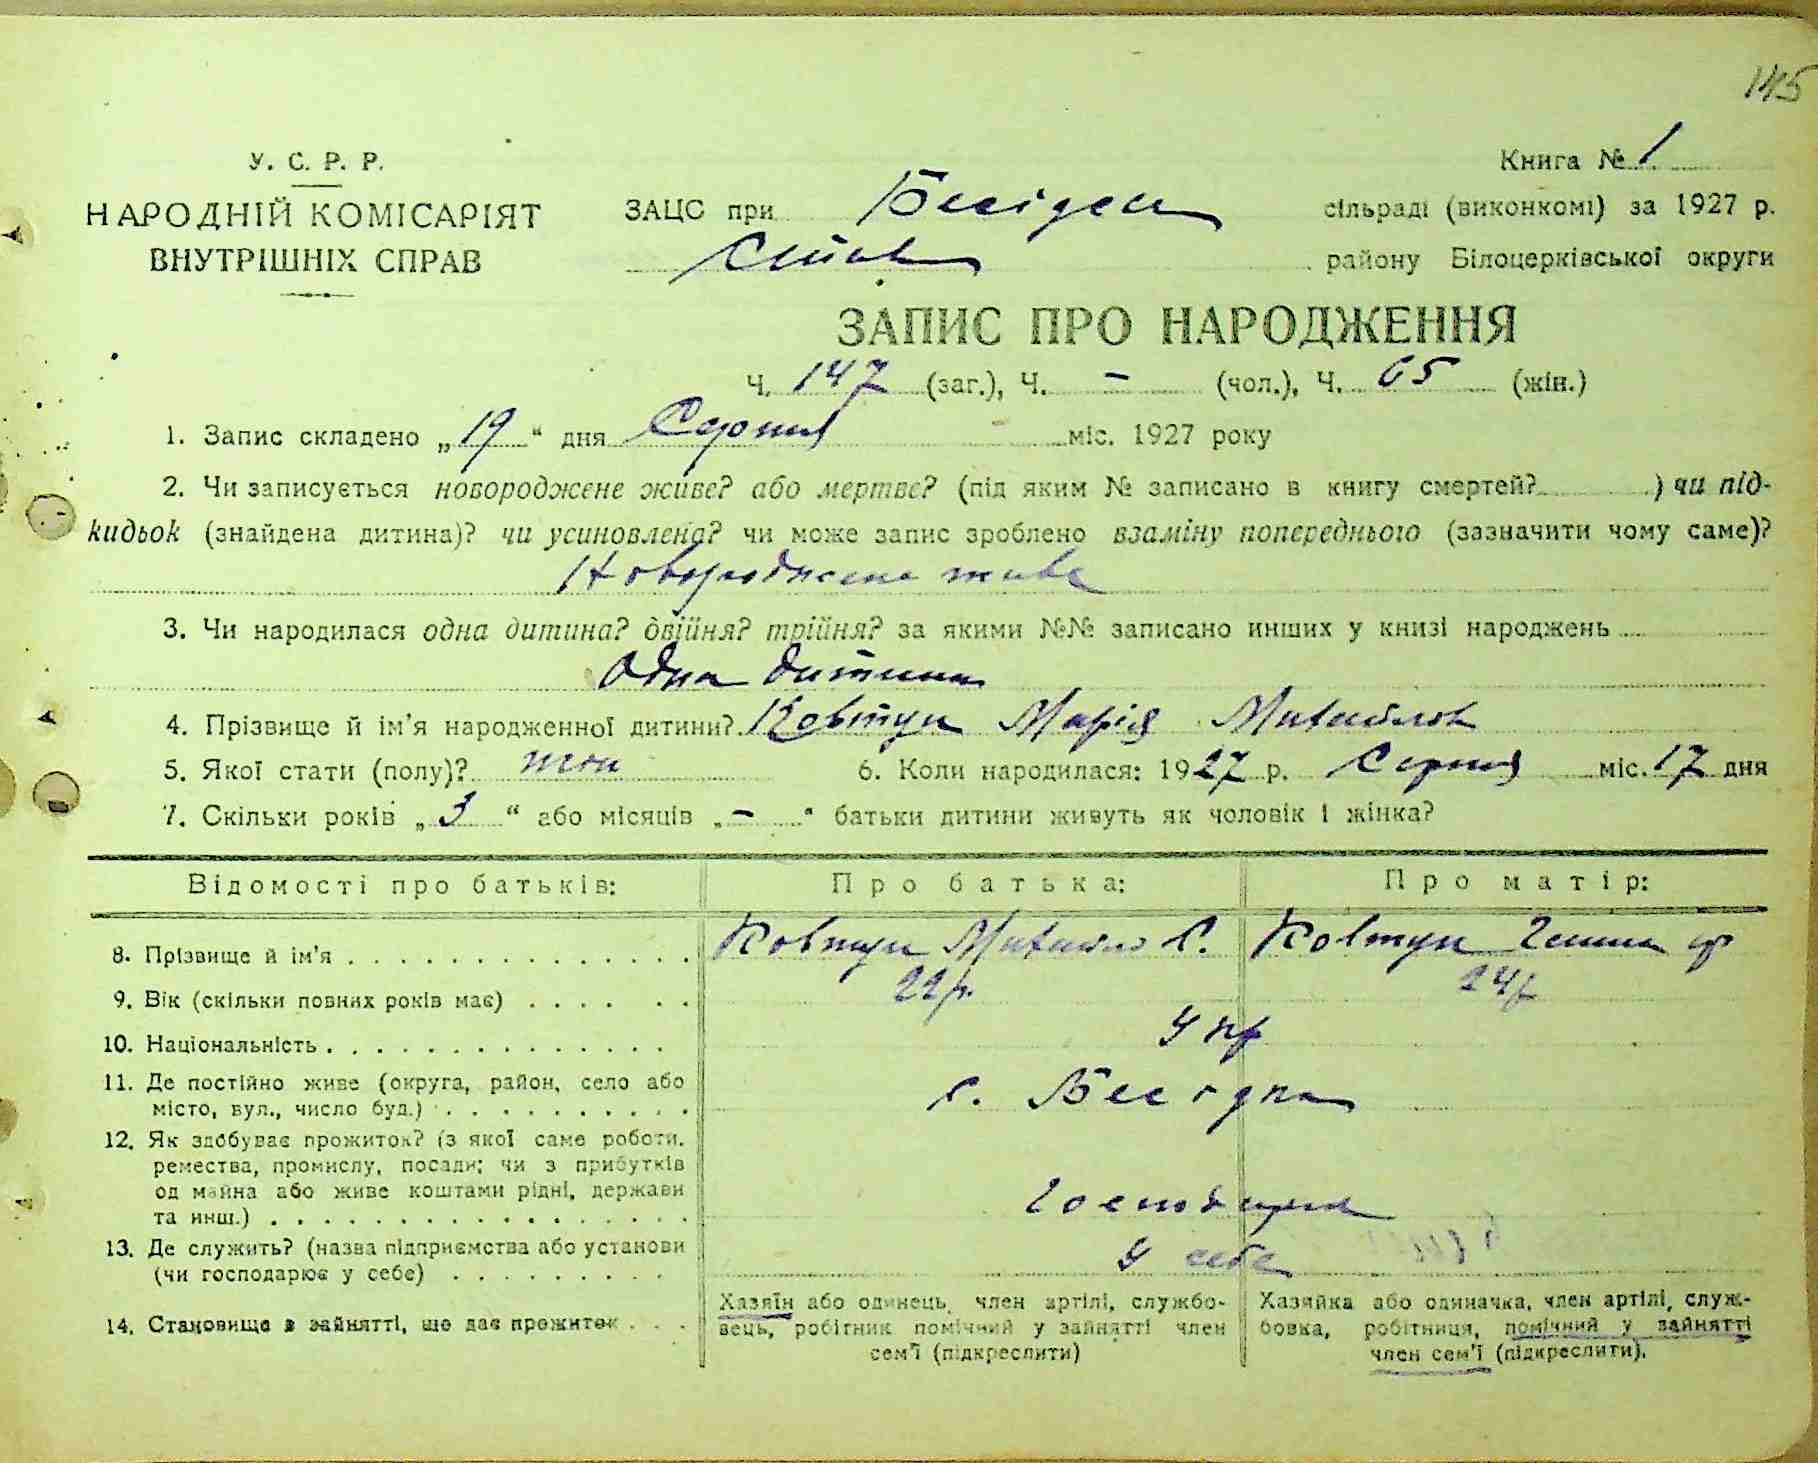 145
У. С. Р. Р.
НАРОДНІЙ КОМІСАРІЯТ
ВНУТРІШНІХ СПРАВ
Книга № 1
ЗАЦС при Бесідськ сільраді (виконкомі) за 1927 р.
Став району Білоцерківської округи
ЗАПИС ПРО НАРОДЖЕННЯ
Ч. 147 (заг.), Ч. – (чол.), Ч. 65 (жін.)
1. Запис складено „19“ дня Серпня міс. 1927 року
2. Чи записується новороджене живе? або мертве? (під яким № записано в книгу смертей? ) чи під-
кидьок (знайдена дитина)? чи усиновлена? чи може запис зроблено взаміну попереднього (зазначити чому саме)?
Новороджена жива
3. Чи народилася одна дитина? двійня? трійня? за якими №№ записано инших у книзі народжень
Одна дитина
4. Прізвище й ім'я народженної дитини? Ковтун Марія Михайлов
5. Якої стати (полу)? жін 6. Коли народилася: 1927 р. Серпня міс. 17 дня
7. Скільки років „3“ або місяців „–“ батьки дитини живуть як чоловік і жінка?
Відомості про батьків: Про батька: Про матір:
8. Прізвище й ім'я Ковтун Михайло С. Ковтун Ганна
9. Вік (скільки повних років має) 22 р. 24 р
10. Національність Укр
11. Де постійно живе (округа, район, село або
місто, вул., число буд.) с. Бесідка
12. Як здобуває прожиток? (з якої саме роботи,
ремества, промислу, посади; чи з прибутків
од майна або живе коштами рідні, держави
та инш.)
13. Де служить? (назва підприємства або установи
(чи господарює у себе) У себе
14. Становище в зайнятті, що дає прожиток
Хазяїн або одинець, член артілі, службо-
вець, робітник помічний у зайнятті член
сем'ї (підкреслити)
Хазяйка або одиначка, член артілі, служ-
бовка, робітниця, помічний у зайнятті
член сем'ї (підкреслити).